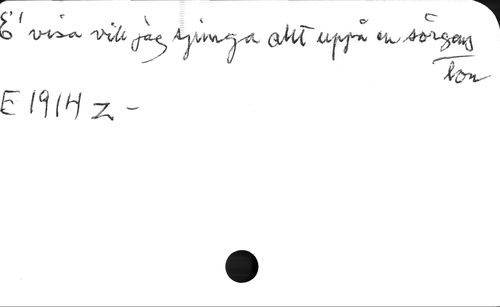 E' visa vill jag sjunga allt uppå en sörgens
ton
E 1914 z -